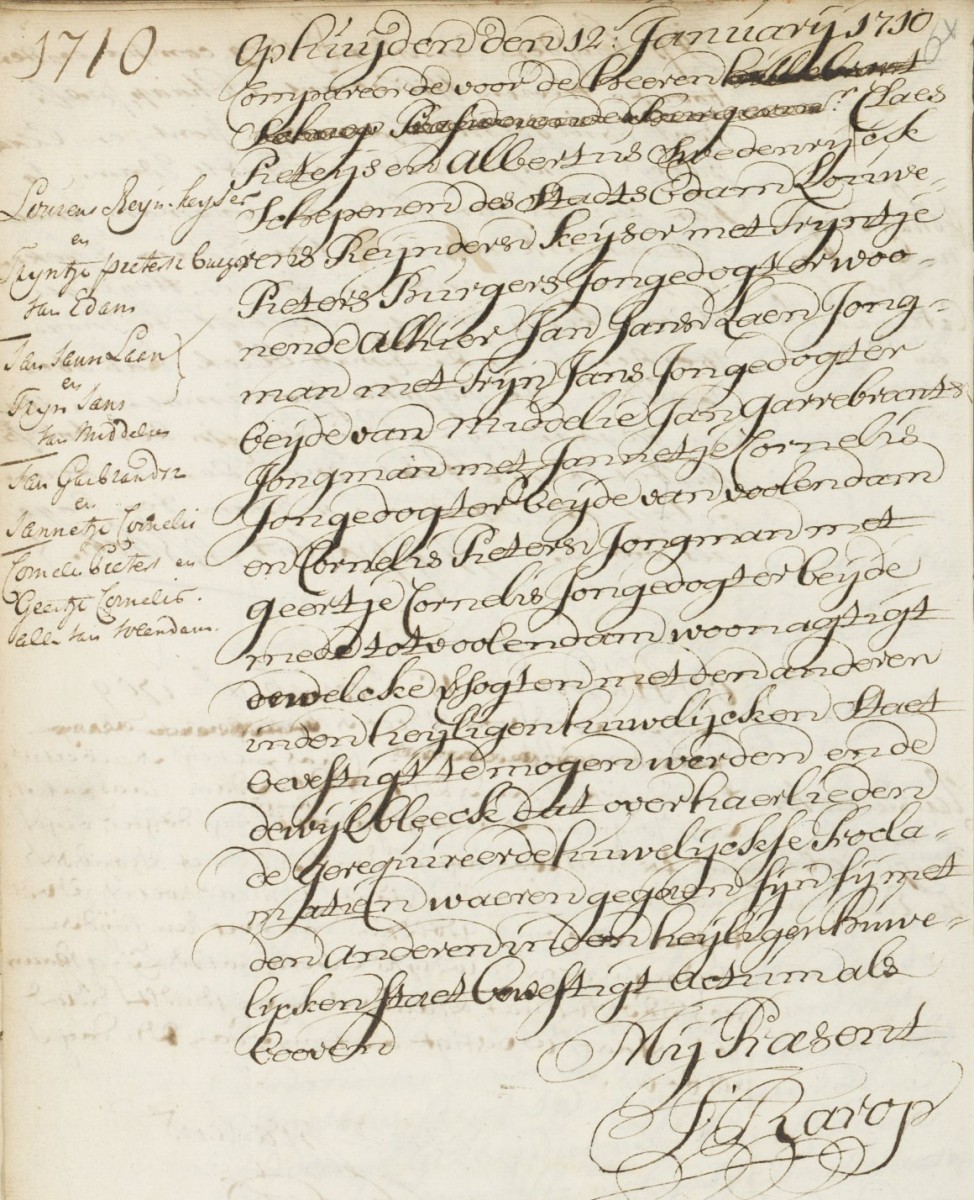 1710
Op huijden den 12: January 1710
Compareerde voor de heeren
Claes
Pietersen Albertus Swedenrijck
Schepenen des Stadts Edam Louwe-
rens Reijndersz Keyser met Tryntje
Pieters Burgers Jongedogter woo-
nende alhier Jan Jansz Laen Jong-
man met Trijn Jans Jongedogter
beyde van Middelie Jan Garrebrants
Jongman met Jannetje Cornelis
Jongedogter beyde van voolendam
en Cornelis Pietersz Jongman met
geertje Cornelis Jongedogter beyde
mede tot voolendam woonagtigt
dewelcke versogten met den anderen
in den heyligen huwelijcken Staet
bevestigt te mogen werden ende
dewijl bleeck dat over haerlieden
de gerequireerde huwelijckse Procla-
matien waeren gegaen sijn sij met
den anderen in den heyligen huwe-
lijcken staet bevestigt Actum als
booven
Mij Præsent
Karop
Lourens Reyn. Keyser
en
Tryntje pieters
van Edam
Jan Jansz Laan
en
Tryn Jans
van Middelie
Jan Garbrandtz
en
Jannetje Cornelis
Cornelis Pieters en
Geertje Cornelis.
alle van Volendam.